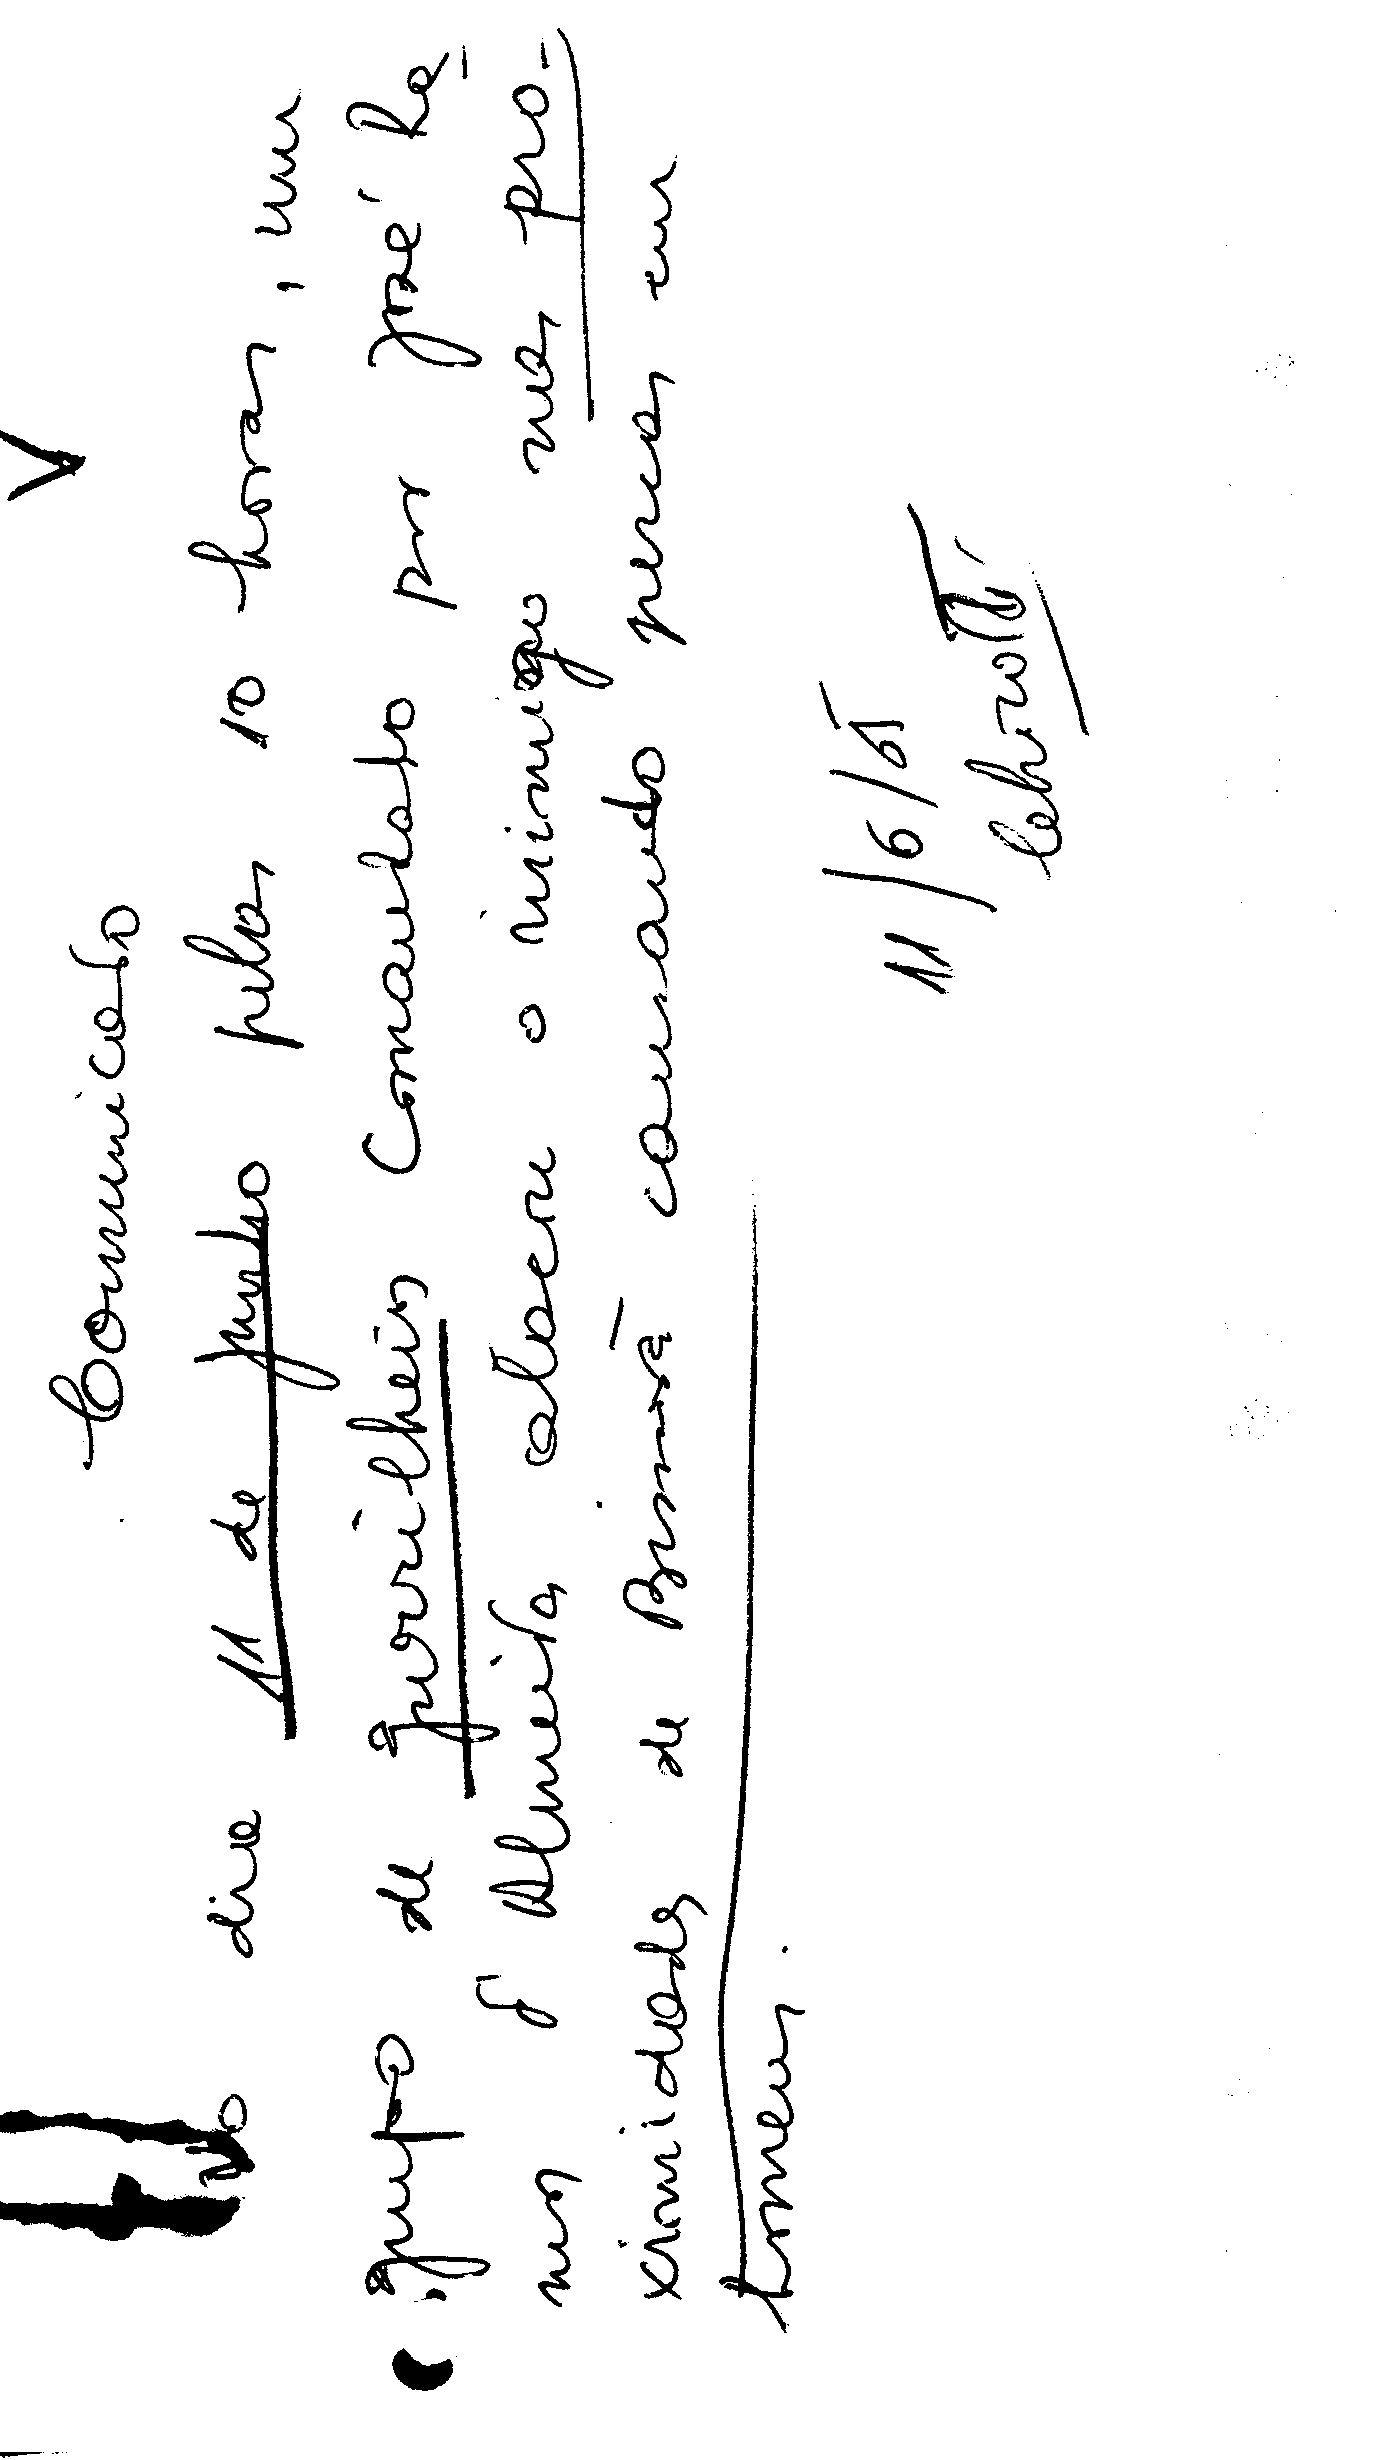 Comunicado
No dia 11 de Junho pelas 10 horas, um
grupo de guerrilheiros Comandado por José Ra-
mos d'Almeida atacou o inimigo nas pro-
ximidades de Binará causando perdas em
homens.
11/6/65